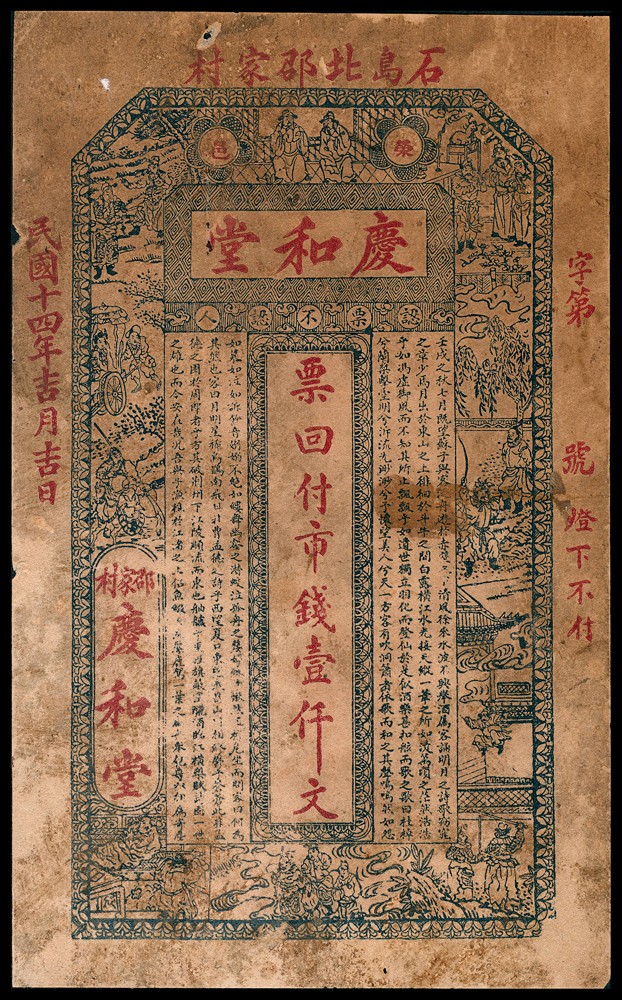 石島北邵家村
榮邑
慶和堂
認票不認人
字第 號 燈下不付
壬戌之秋七月既望蘇子與客泛舟遊於赤壁之下清風徐來水波不興舉酒屬客誦明月之詩歌窈窕
之章少焉月出於東山之上徘徊於斗牛之間白露橫江水光接天縱一葦之所如凌萬頃之茫然浩浩
乎如馮虛御風而不知其所止飄飄乎如遺世獨立羽化而登仙於是飲酒樂甚扣舷而歌之歌曰桂棹
兮蘭槳擊空明兮泝流光渺渺兮予懷望美人兮天一方客有吹洞簫者依歌而和之其聲嗚嗚然如怨
票回付市錢壹仟文
如慕如泣如訴餘音嫋嫋不絕如縷舞幽壑之潛蛟泣孤舟之嫠婦愀然正危坐而問客曰何為
其然也客曰月明星稀烏鵲南飛此非曹孟德之詩乎西望夏口東望武昌山川相繆鬱乎蒼蒼此非孟
德之困於周郎者乎方其破荊州下江陵順流而東也舳艫千里旌旗蔽空釃酒臨江橫槊賦詩固一世
之雄也而今安在哉況吾與子漁樵於江渚之上侶魚蝦麋鹿駕一葉之舟舉匏以相屬寄
民國十四年吉月吉日
邵家村
慶和堂